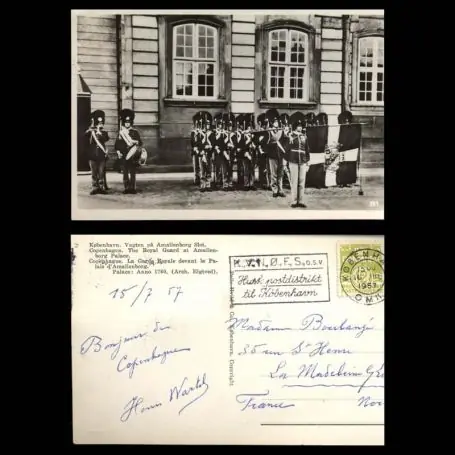 København. Vagten på Amalienborg Slot.
Copenhagen. The Royal Guard at Amalienborg Palace.
Copenhague. La Garde Royale devant le Palais d'Amalienborg.
Palace: Anno 1760. (Arch. Eigtved).
15/7 57
Bonjour de
Copenhague
K, V, N, Ø, F, S, o.s.v
Husk postdistrikt
til København
KØBENHAVN
OMK
Madame
35 rue St Henri
La
France
Copyright